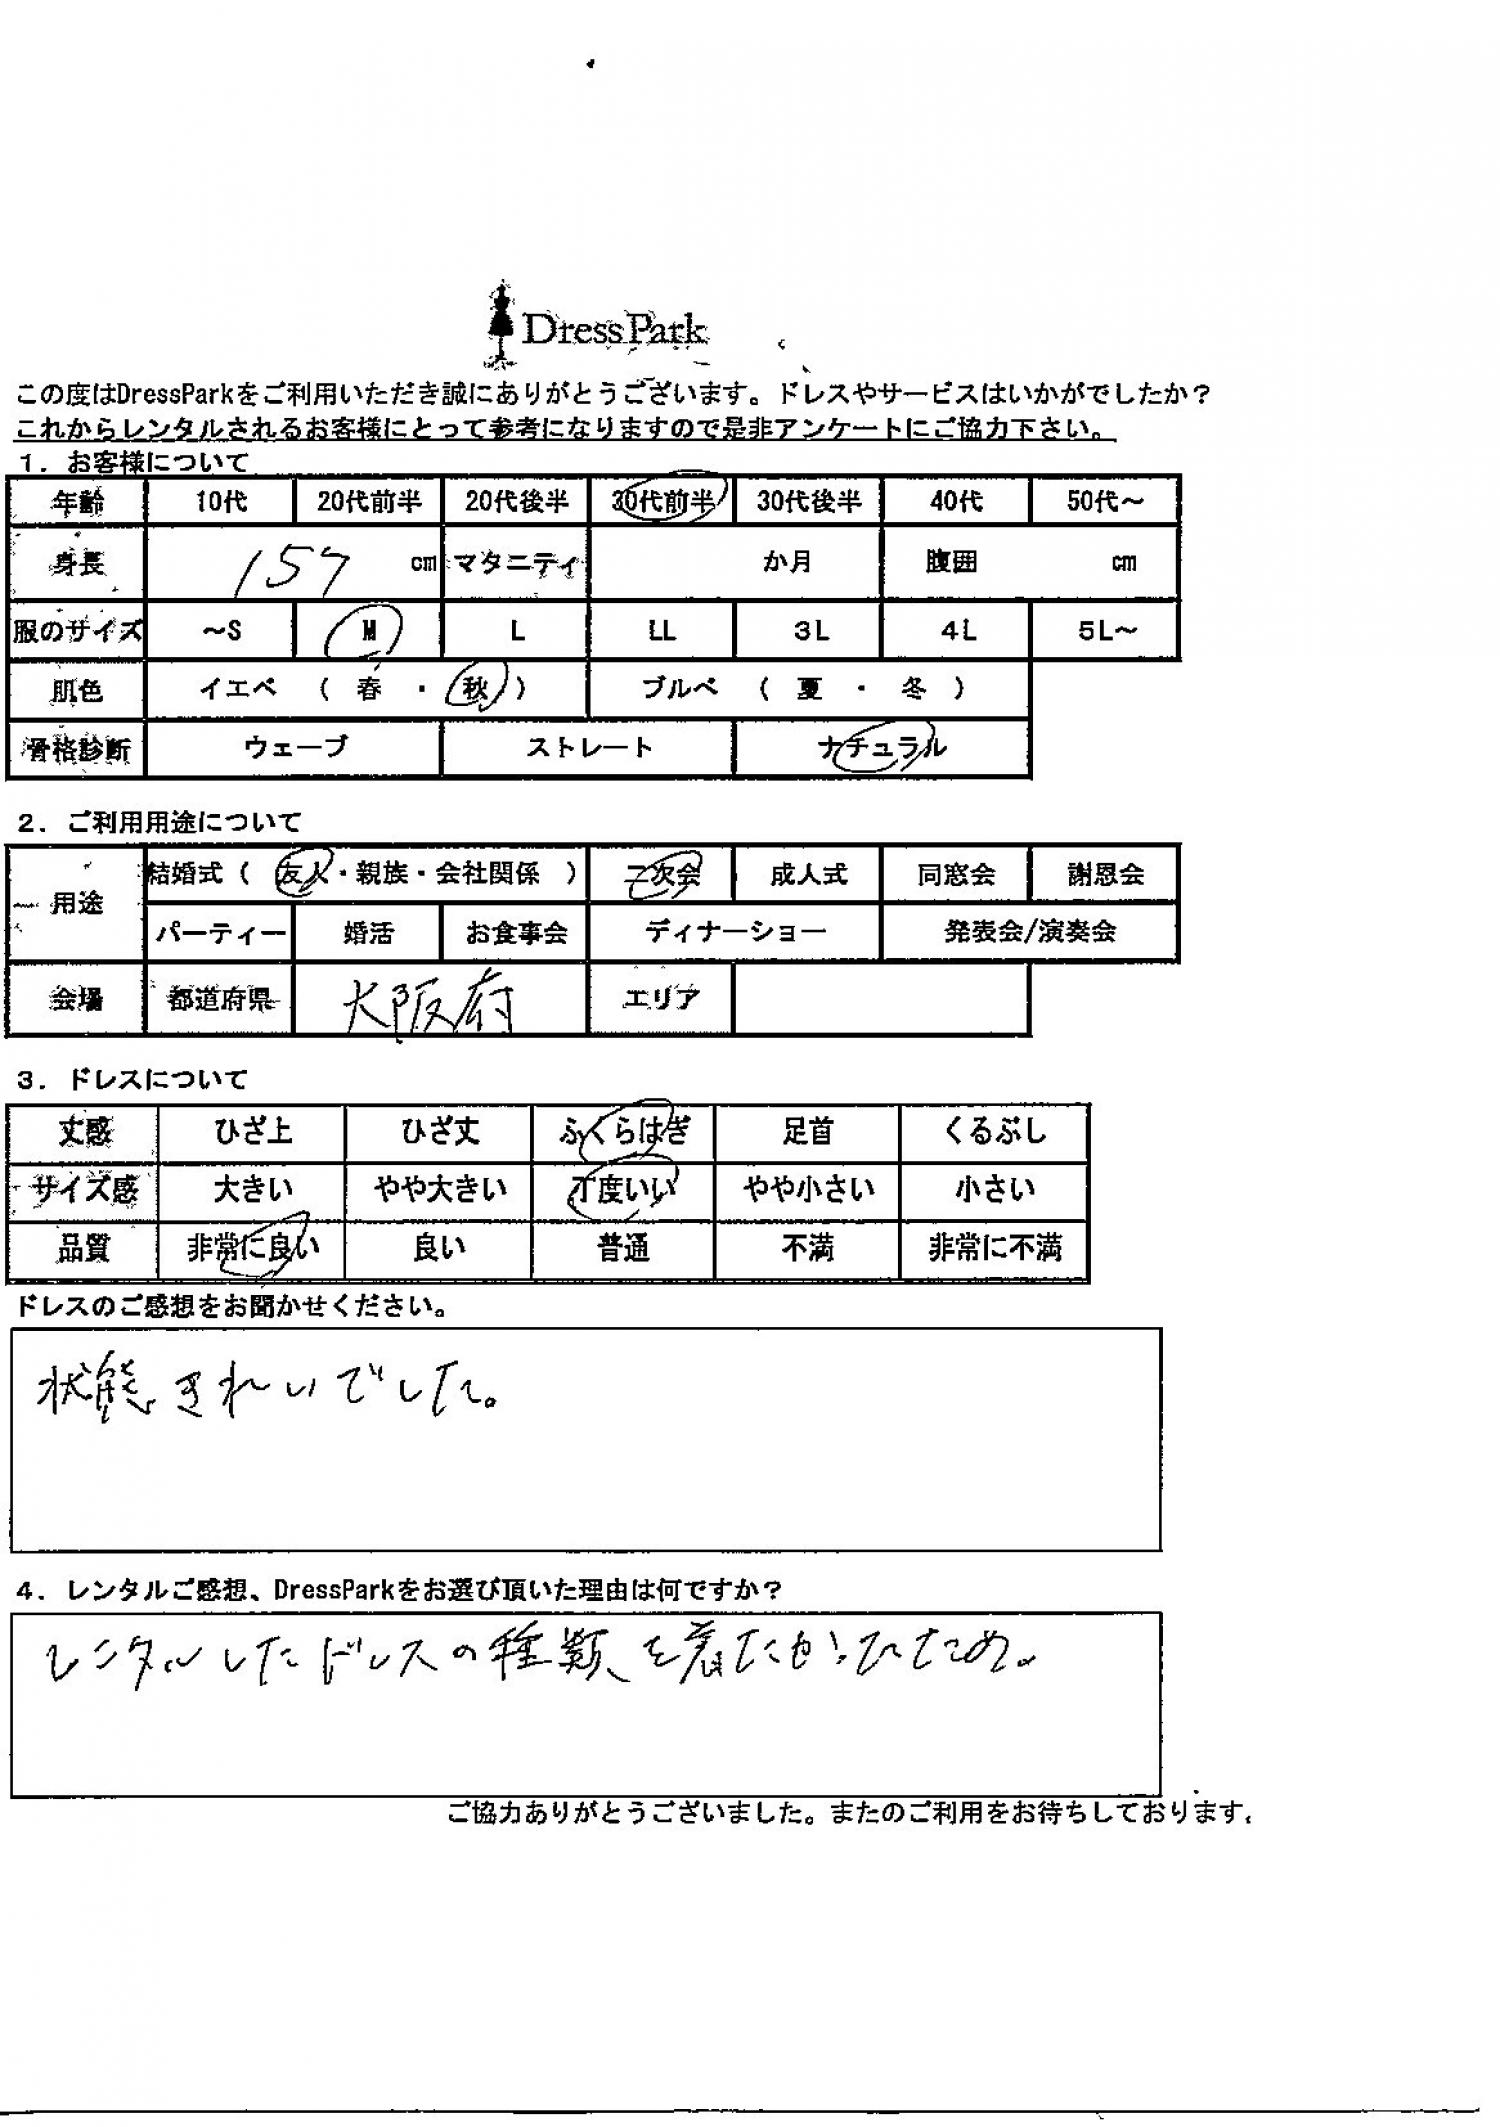 DressPark
この度はDressParkをご利用いただき誠にありがとうございます。ドレスやサービスはいかがでしたか？
これからレンタルされるお客様にとって参考になりますので是非アンケートにご協力下さい。
１．お客様について
年齢 10代 20代前半 20代後半 30代前半 30代後半 40代 50代～
身長 157 cm マタニティ か月 腹囲 cm
服のサイズ ～S M L LL 3L 4L 5L～
肌色 イエベ （ 春 ・ 秋 ） ブルベ （ 夏 ・ 冬 ）
骨格診断 ウェーブ ストレート ナチュラル
２．ご利用用途について
用途 結婚式（ 友人・親族・会社関係 ） 二次会 成人式 同窓会 謝恩会
パーティー 婚活 お食事会 ディナーショー 発表会/演奏会
会場 都道府県 大阪府 エリア
３．ドレスについて
丈感 ひざ上 ひざ丈 ふくらはぎ 足首 くるぶし
サイズ感 大きい やや大きい 丁度いい やや小さい 小さい
品質 非常に良い 良い 普通 不満 非常に不満
ドレスのご感想をお聞かせください。
状態きれいでした。
４．レンタルご感想、DressParkをお選び頂いた理由は何ですか？
レンタルしたドレスの種類を着たかったため。
ご協力ありがとうございました。またのご利用をお待ちしております。